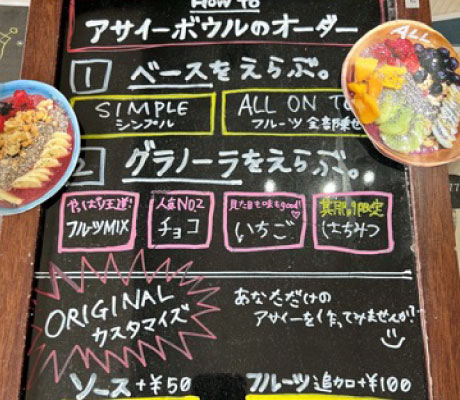 How to
アサイーボウルのオーダー
1 ベースをえらぶ。
SIMPLE
シンプル
ALL ON TO
フルーツ全部乗せ
2 グラノーラをえらぶ。
やっぱり王道!
フルーツMIX
人気NO.2
チョコ
見た目も味もgood!
いちご
期間限定
はちみつ
ORIGINAL
カスタマイズ
あなただけの
アサイーを作ってみませんか?
ソース+¥50
フルーツ追加+¥100
ALL